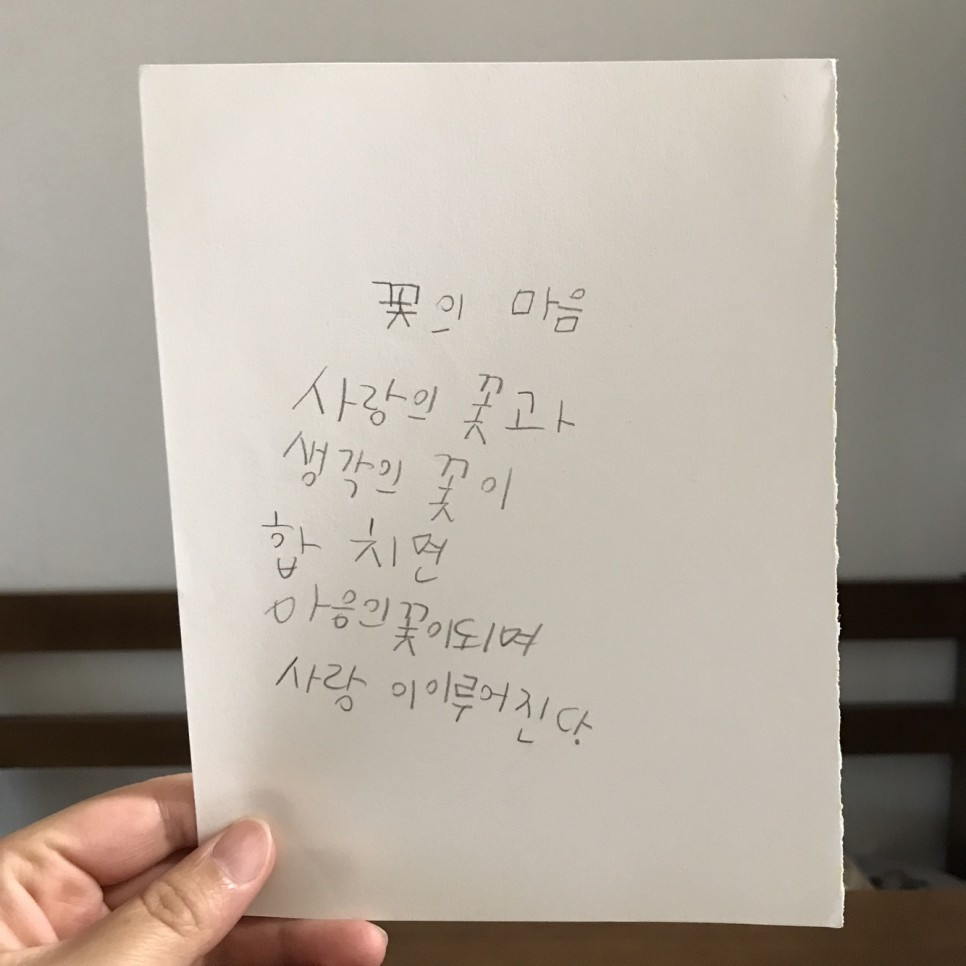 꽃의 마음
사랑의 꽃과
생각의 꽃이
합 치면
마음의꽃이되며
사랑 이이루어진다.